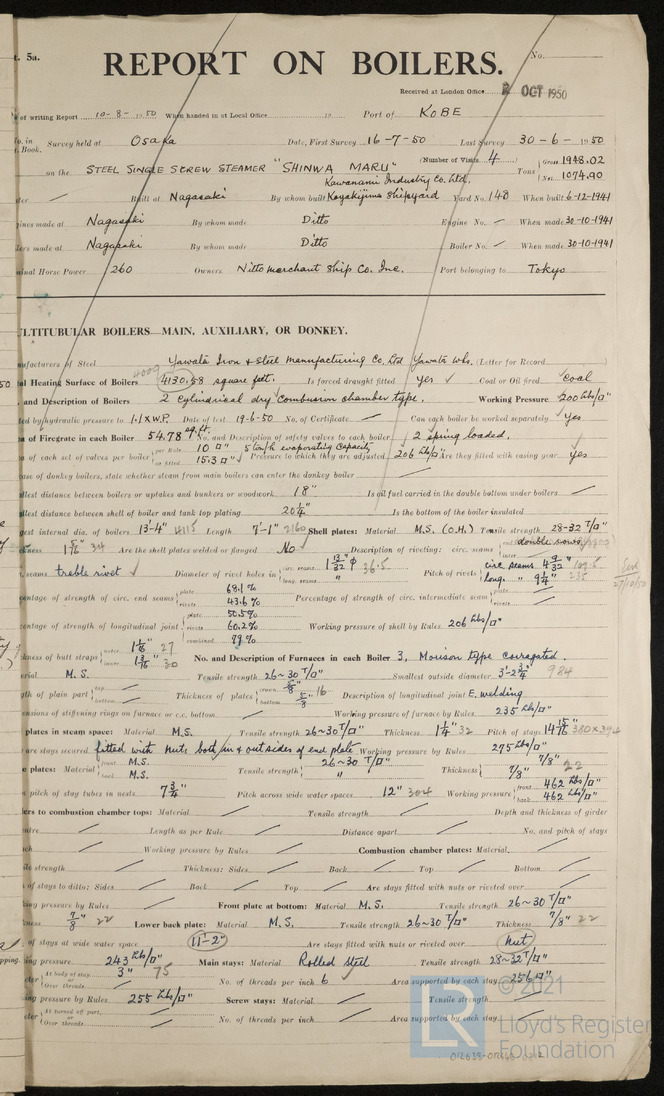 t. 5a.
REPORT ON BOILERS.
No.
Received at London Office 2 OCT 1950
of writing Report 10-8-1950 When handed in at Local Office 19 Port of KOBE
No. in Survey held at Osaka Date, First Survey 16-7-50 Last Survey 30-6-1950
Book.
(Number of Visits 4 ) Gross 1948.02
on the STEEL SINGLE SCREW STEAMER "SHINWA MARU" Tons Net 1074.90
Built at Nagasaki By whom built Kawanami Industry Co. Ltd. Koyakijima Shipyard Yard No. 148 When built 6-12-1941
ines made at Nagasaki By whom made Ditto Engine No. — When made 30-10-1941
lers made at Nagasaki By whom made Ditto Boiler No. — When made 30-10-1941
inal Horse Power 260 Owners Nitto merchant Ship Co. Inc. Port belonging to Tokyo
ULTITUBULAR BOILERS—MAIN, AUXILIARY, OR DONKEY.
nufacturers of Steel Yawata Iron & Steel Manufacturing Co. Ltd Yawata Wks. (Letter for Record )
al Heating Surface of Boilers 4130.58 square feet. Is forced draught fitted yes Coal or Oil fired coal
and Description of Boilers 2 Cylindrical dry combusion chamber type. Working Pressure 200 lbs/□"
ted by hydraulic pressure to 1.1 X W.P. Date of test 19-6-50 No. of Certificate — Can each boiler be worked separately yes
a of Firegrate in each Boiler 54.78 sq.ft. No. and Description of safety valves to each boiler 2 spring loaded.
a of each set of valves per boiler per Rule 10 □" 5 ton/h evaporating capacity
as fitted 15.3 □" Pressure to which they are adjusted 206 lb/□" Are they fitted with easing gear yes
ase of donkey boilers, state whether steam from main boilers can enter the donkey boiler
llest distance between boilers or uptakes and bunkers or woodwork 18" Is oil fuel carried in the double bottom under boilers
llest distance between shell of boiler and tank top plating 20¼" Is the bottom of the boiler insulated
gest internal dia. of boilers 13'-4" 4115 Length 7'-1" 2160 Shell plates: Material M.S. (O.H.) Tensile strength 28-32 T/□"
ckness 1 5/16 34 Are the shell plates welded or flanged No Description of riveting: circ. seams end double rows
inter
. seams treble rivet Diameter of rivet holes in circ. seams 1 13/32 φ 36.5 Pitch of rivets circ seams 4 9/32 109.5
long. seams " long. " 9¼" 235
centage of strength of circ. end seams plate 68.1 % Percentage of strength of circ. intermediate seam plate
rivets 43.6 % rivets
centage of strength of longitudinal joint plate 50.5 %
rivets 60.2 % Working pressure of shell by Rules 206 lbs/□"
combined 77 %
ckness of butt straps outer 1 1/8" 27
inner 1 3/16" 30 No. and Description of Furnaces in each Boiler 3, Morison type corrugated
erial M.S. Tensile strength 26~30 T/□" Smallest outside diameter 3'-2¾" 984
gth of plain part top Thickness of plates crown 5/8" 16 Description of longitudinal joint E. welding
bottom bottom 5/8"
ensions of stiffening rings on furnace or c.c. bottom Working pressure of furnace by Rules 235 lbs/□"
plates in steam space: Material M.S. Tensile strength 26~30 T/□" Thickness 1¼" 32 Pitch of stays 14 15/16"
are stays secured fitted with nuts both in & out sides of end plate Working pressure by Rules 275 lbs/□"
e plates: Material front M.S. Tensile strength 26~30 T/□" Thickness 7/8" 22
back M.S. " 7/8"
n pitch of stay tubes in nests 7¾" Pitch across wide water spaces 12" 304 Working pressure front 462 lbs/□"
back 462 lbs/□"
ers to combustion chamber tops: Material Tensile strength Depth and thickness of girder
ntre Length as per Rule Distance apart No. and pitch of stays
ch Working pressure by Rules Combustion chamber plates: Material
ile strength Thickness: Sides Back Top Bottom
of stays to ditto: Sides Back Top Are stays fitted with nuts or riveted over
ing pressure by Rules Front plate at bottom: Material M.S. Tensile strength 26~30 T/□"
kness 7/8" 22 Lower back plate: Material M.S. Tensile strength 26~30 T/□" Thickness 7/8" 22
of stays at wide water space 11'-2" Are stays fitted with nuts or riveted over Nut
ing pressure 243 lbs/□" Main stays: Material Rolled Steel Tensile strength 28~32 T/□"
eter At body of stay, 3" 75 No. of threads per inch 6 Area supported by each stay 256 □"
Over threads
ing pressure by Rules 255 lbs/□" Screw stays: Material Tensile strength
eter At turned off part, or Over threads No. of threads per inch Area supported by each stay
LR
© 2021
Lloyd's Register
Foundation